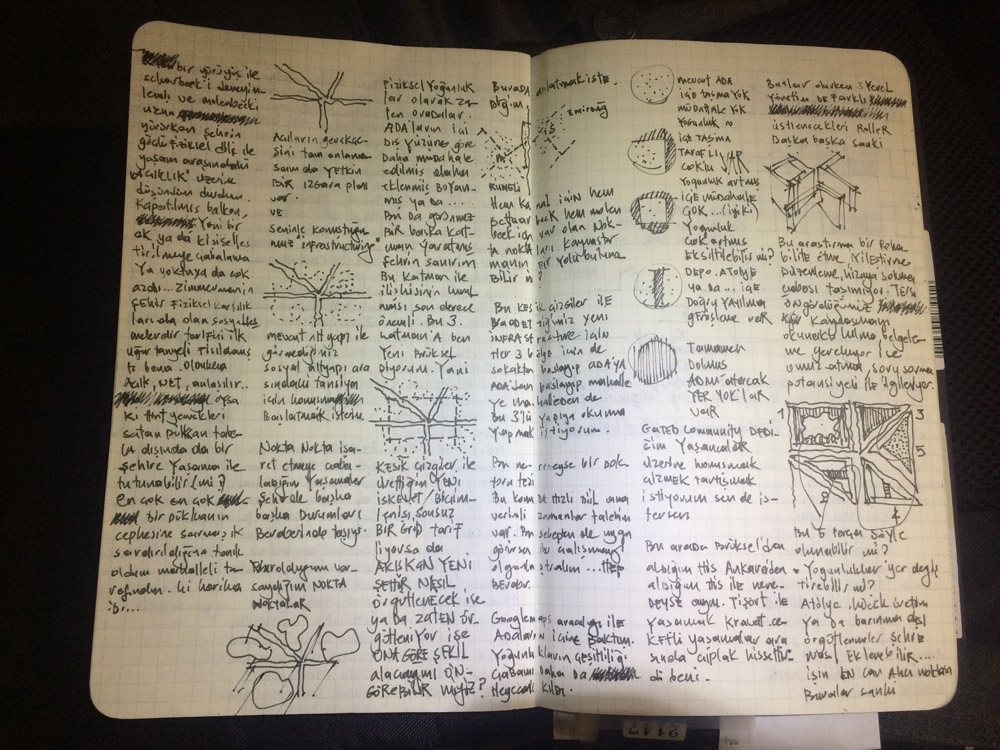 bir yürüyüş ile
schaerbeek'i deneyim
lemli ve molenbeek'i
uzun
yürürken şehrin
güçlü fiziksel dili ile
yaşam arasındaki
"açıklık" üzerine
düşündüm durdum.
Kapatılmış balkon,
Yeni bir
ek ya da kişiselleş
tirilmeye çabalama
Ya yoktuysa da çok
azdı... Zimmermanın
şehir fiziksel karşılık
ları da olan sosyalleş
melerdir tarifini ilk
uğur tanyeli fısıldamış
tı bana. Oldukça
açık, net, anlaşılır.
oysa
ki Hint yemekleri
satan dükkan tabe-
la dışında da bir
şehire Yaşama ile
tutunabilir (mi?)
en çok en çok
bir dükkanın
cephesine sarmaşık
sardırıldığına tanık
oldum mahalleli ta-
rafından. ki harika
Açıların gerekçe-
sini tam anlama-
sam da yetkin
BİR IZGARA planı
var.
VE
seninle konuştuğu-
muz "infrastructuring"
mevcut alt yapı ile
görmediğimiz
sosyal altyapı ara
sındaki tansiyon
için konuşma
Başlatmak isterim.
Nokta Nokta işa-
ret etmeye çaba-
ladığım Yaşamalar
Şehirde başka
başka Durumları
Beraberinde taşıyor.
var-
saydığım NOKTA
NOKTALAR
Fiziksel Yoğunluk
lar olarak za-
ten oradalar.
ADAların içi
Dış Yüzüne göre
Daha müdahale
edilmiş daha
eklenmiş Boyan-
mış ya da...
Bu da görünmez
BİR başka kat-
man Yaratmış
şehrin sanırım
Bu Katman ile
ilişkisinin kurul
ması son derece
önemli. Bu 3.
katman'A ben
Yeni Brüksel
Diyorum. Yani
KESİK çizgiler ile
ürettiğim YENİ
İSKELET / BİÇİM-
lenişi, SONSUZ
BİR GRİD tarif
liyorsa da
AKIŞKAN YENİ
ŞEHİR NASIL
ÖRGÜTLENECEK ise
ya da ZATEN ÖR-
gütleniyor ise
ONA GÖRE ŞEKİL
alacağını ÖN-
GÖREBİLİR miyiz?
Burada anlatmak iste-
diğim
Emirdağ
Hem
beck hem molen
beek için olan Nok-
ta noktaları Kaynaştır
manın BİR Yolu buluna
Bilir mi?
Bu KESik çizgiler ile
ürettiğimiz yeni
INFRAstructure için
Her 3 bölge için de
sokaktan başlayıp ADAYA
ADAdan başlayıp mahalle
ye mahalleden de
Bu 3'lü yapıya okuma
Yapmak istiyorum.
Bu neredeyse bir dok-
tora tezi
Bu konuda Hızlı DEĞİL ama
verimli zamanlar talebim
var. Bu sebepten de uygun
görürsen iki çalışmayı
olgunlaştıralım... Hep
Beraber.
Google maps aracılığı ile
Adaların içine Baktım.
Yoğunlukların Çeşitliliği
Çabamı daha da
Heyecanlı kıldı.
mevcut ADA
içe taşma YOK
müdahale YOK
Yoğunluk
içe taşma
TARAFLI
çoklu VAR
Yoğunluk artmış
içe müdahale
ÇOK... (iyi ki)
Yoğunluk
çok artmış
Eksiltilebilir mi?
DEPO. ATÖLYE
ya da... içe
Doğru Yayılma
görüşleme VAR
Tamamen
Dolmuş
ADIM atacak
YER YOK'LAR
VAR
GATED Community DEDİ-
ğim Yaşamalar
üzerine konuşmak
çizmek tartışmak
istiyorum sen de is-
tersen
Bu arada Brüksel'den
aldığım his Ankara'dan
aldığım his ile nere-
deyse aynı. Tişört ile
Yaşamak kravat ce-
ketli yaşamalar ara
sında çıplak hissettir-
di beni.
Bunlar olurken 3 Yerel
Yönetim DE FARKLI
üstlenecekleri Roller
Başka başka sanki
Bu araştırma bir Reha
bilite etme, iyileştirme
Düzenleme, hizaya sokma
çabası taşımıyor. Tersi
öngördüğümüz
Kaydaşmayı
okumak, bulma belgele-
me yereliyor ile
umuz atma, soru sorma
potansiyeli ile ilgileniyor.
1
3
5
2
4
Bu 5 parça şöyle
olunabilir mi?
Yoğunluklar yer değiş
tirebilir mi?
Atölye, küçük üretim
ya da barınma dışı
örgütlenmeler şehre
nasıl Eklenebilir...
işin EN can Alıcı noktası
Buralar sanki
2117